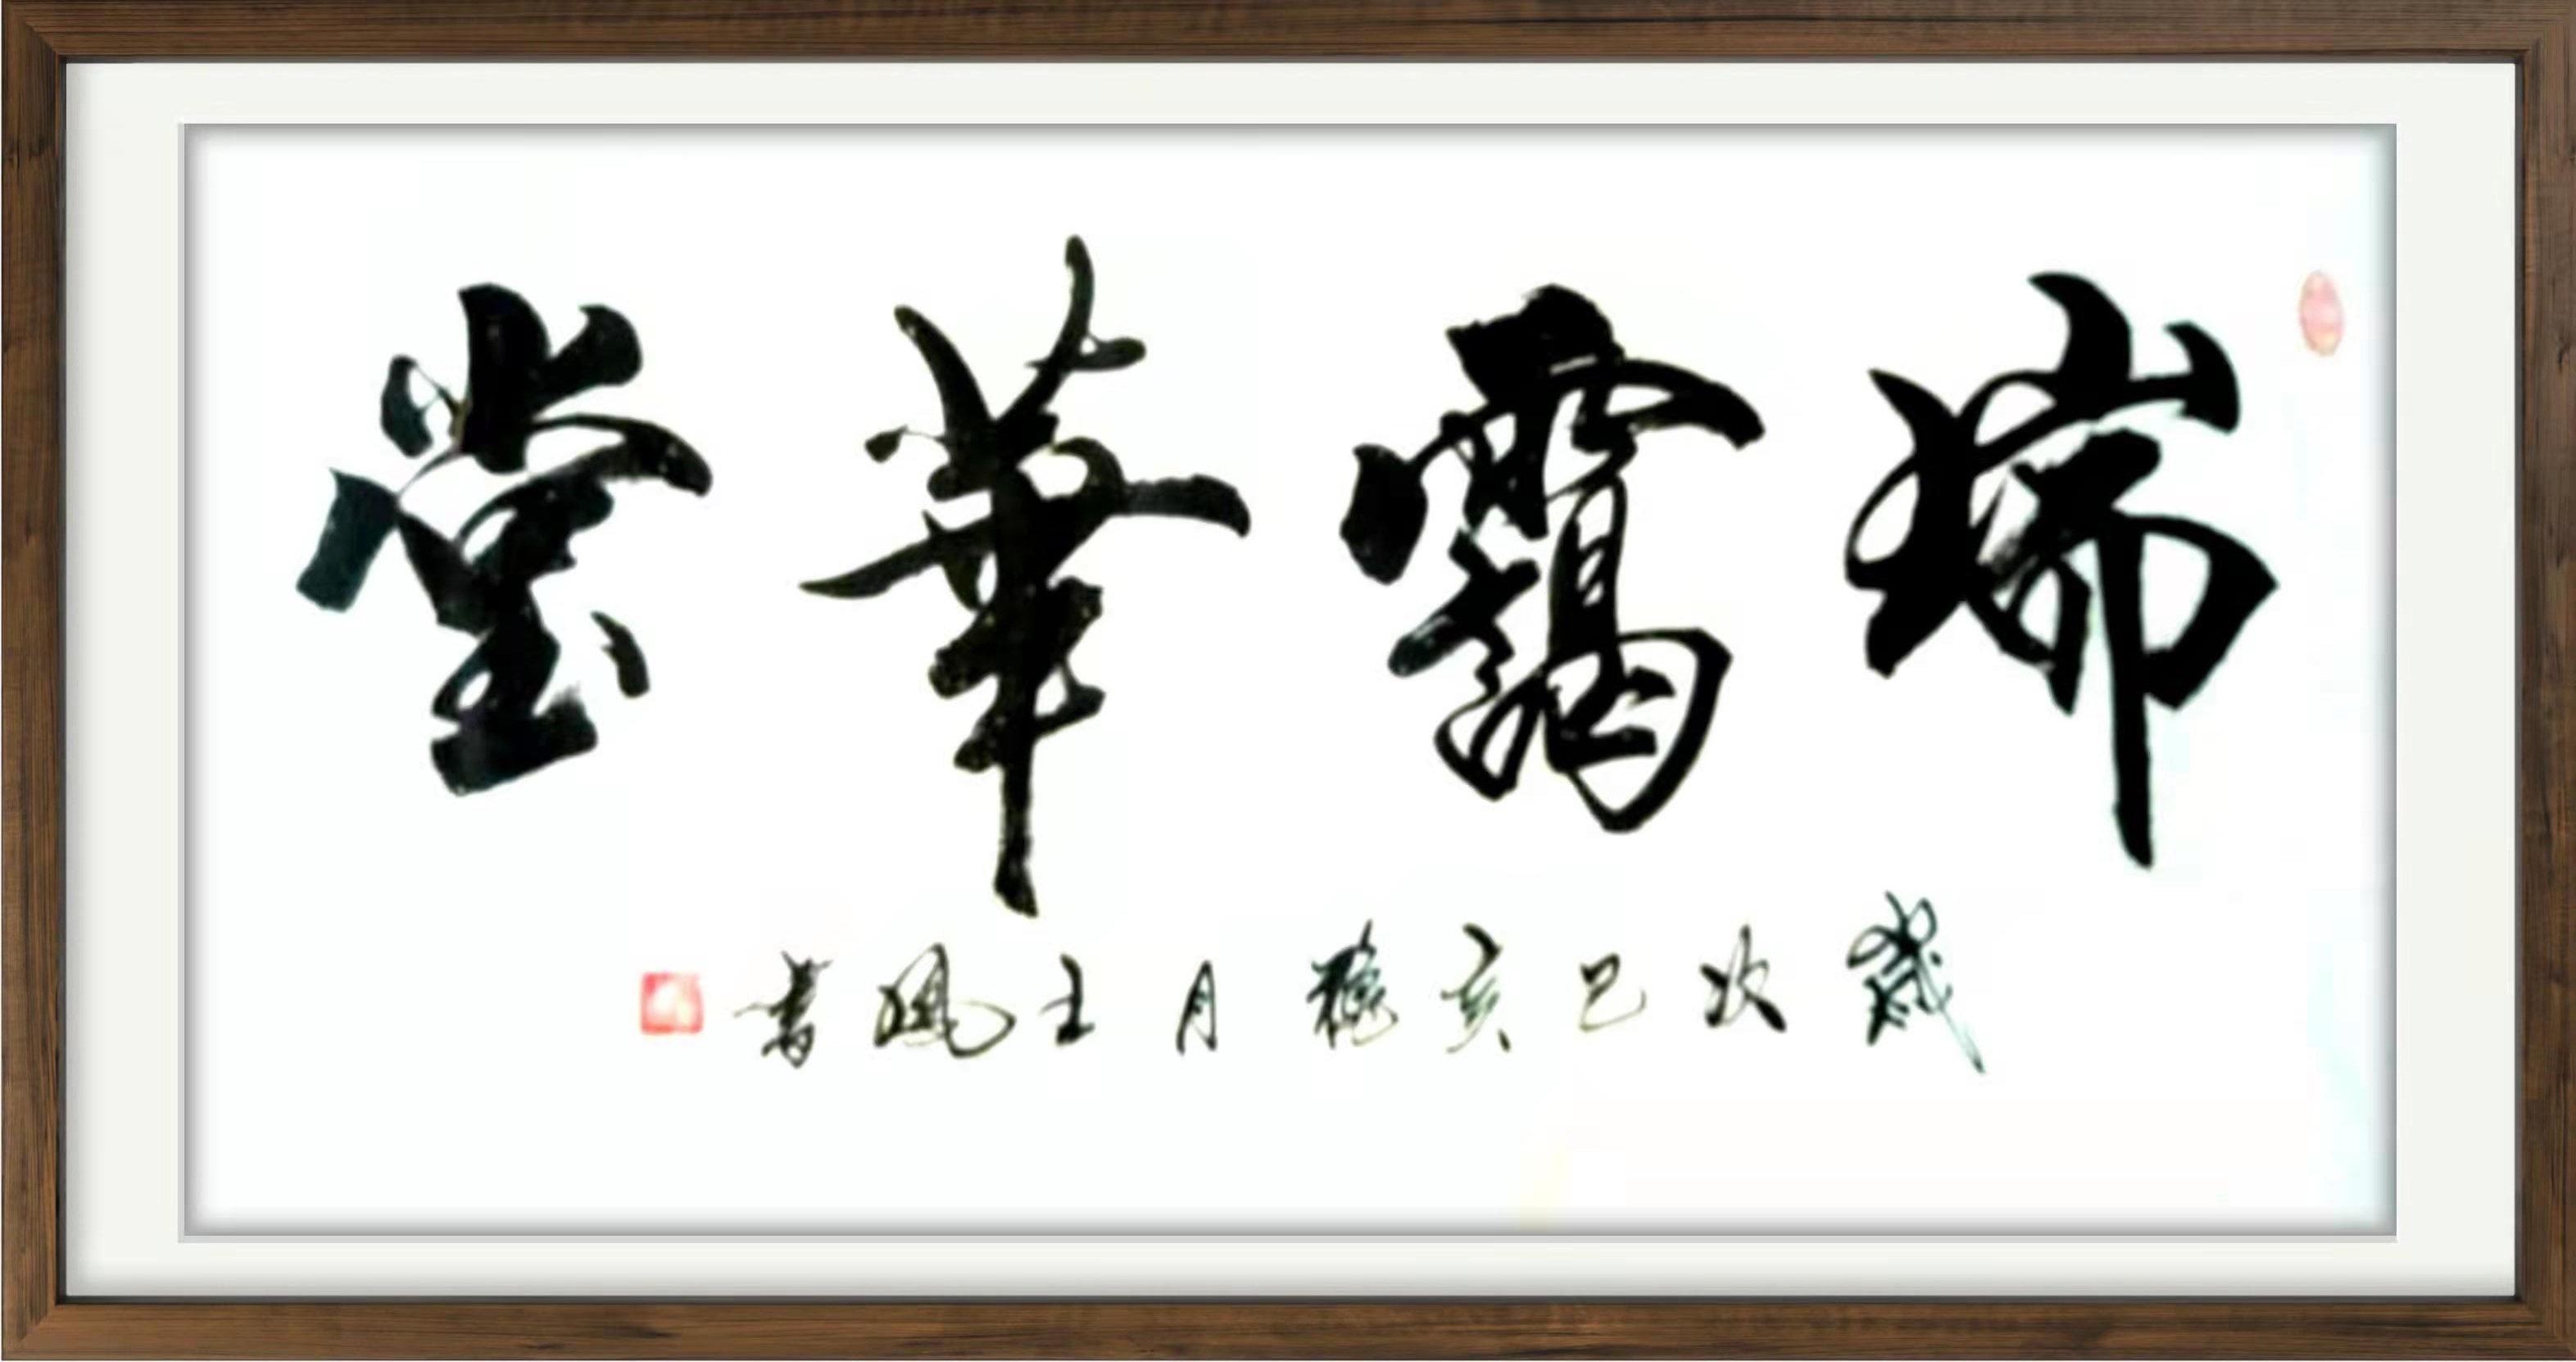 瑞靄華堂
歲次己亥穐月王風書